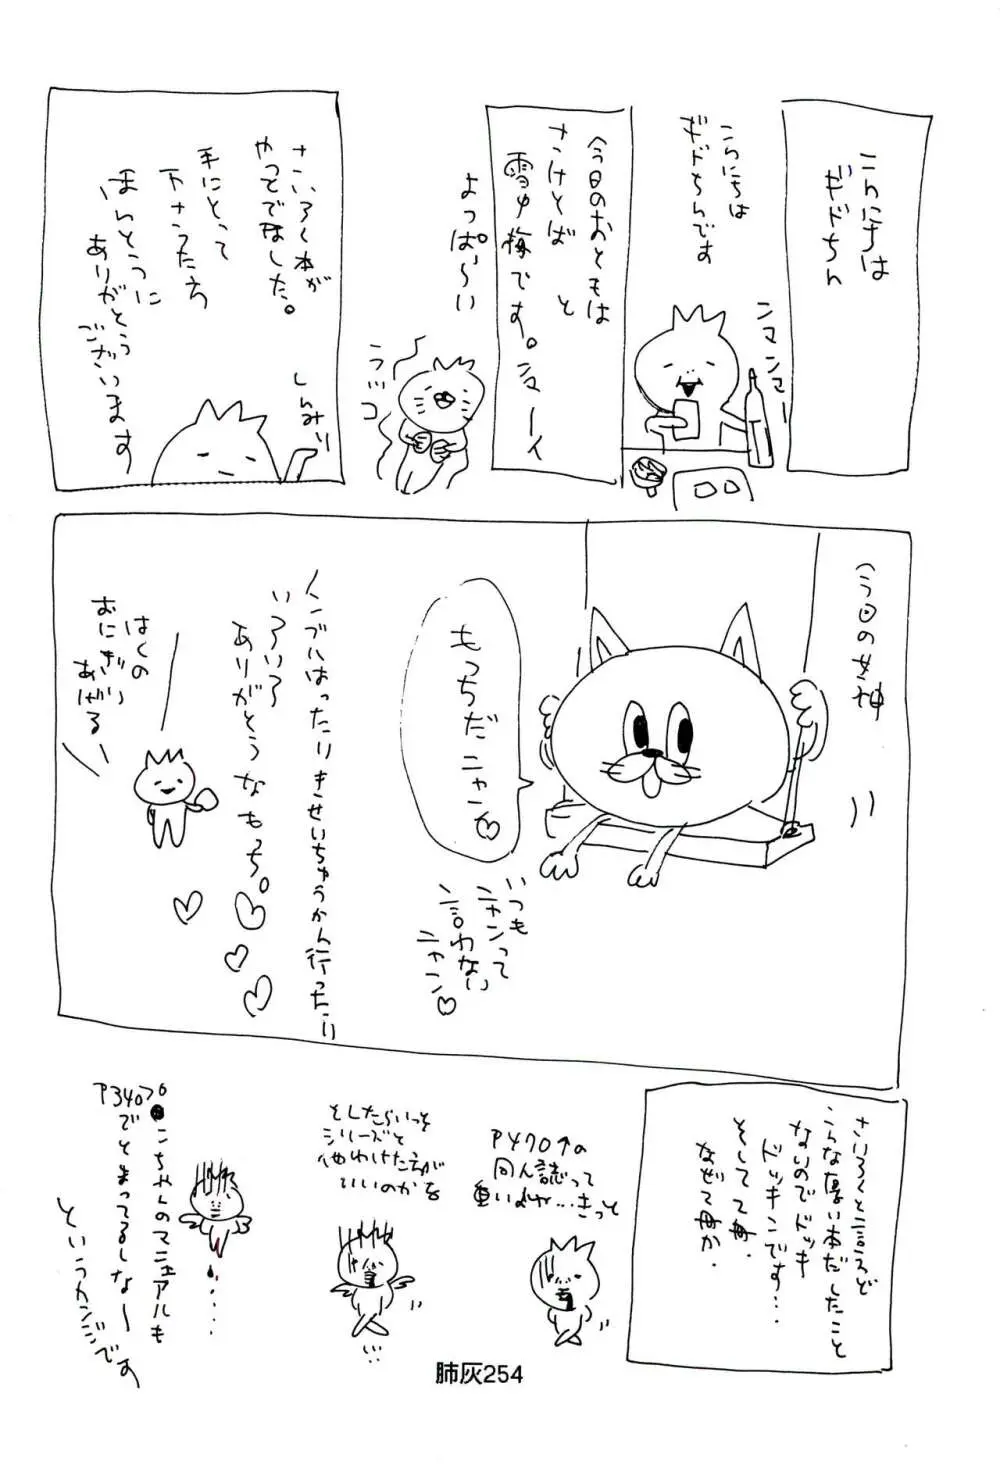 こんにちは
ギドちん
こんにちは
ギドちんです
ンマンマー
今日のおともは
さけとばと
雪中梅です。ンマーイ
よっぱらい
ウィッコ
さいろく本が
やっとでました。
手にとって
下さったち
ほんとうに
ありがとう
ございます
しんみり
今日の女神
もっちだニャン♡
いつも
ニャンって
言わない
ニャン♡
いろいろ
ありがとうなもっち。
ぼくの
おにぎり
あげる
さいろくと言えど
こんな厚い本だしたこと
ないのでドッキ
ドッキンです…
そして
P470↑の
同人誌って
重いよね…きっと
としたらいっそ
シリーズと
わけた方が
いいのかな
P340
こちゃんのマニュアルも
でとまってるしな〜
というカンジです
肺灰254